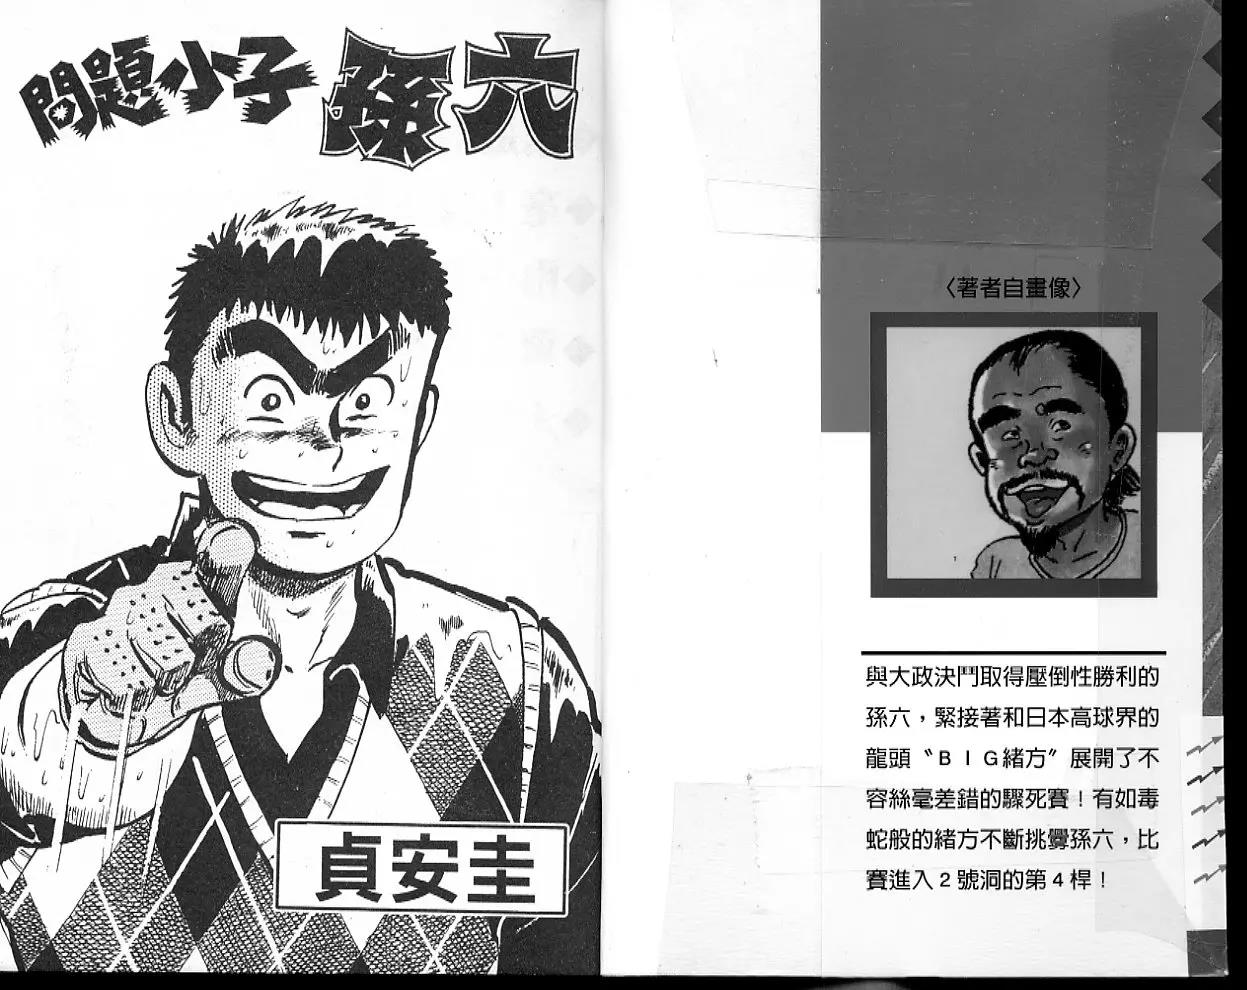 問題小子 孫六
貞安圭
〈著者自畫像〉
與大政決鬥取得壓倒性勝利的
孫六，緊接著和日本高球界的
龍�〝ＢＩＧ緒方〞展開了不
容絲毫差錯的驟死賽！有如毒
蛇般的緒方不斷挑釁孫六，比
賽進入２號洞的第４桿！